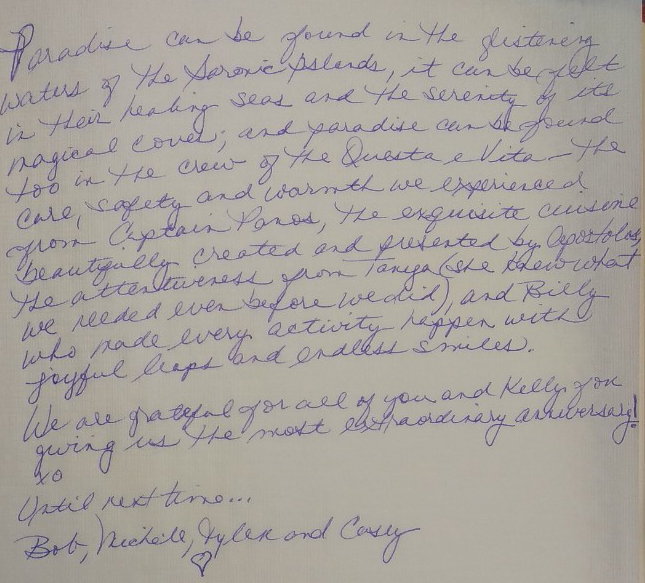 Paradise can be found in the glistening
waters of the Saronic Islands, it can be felt
in their healing seas and the serenity of its
magical coves; and paradise can be found
too in the crew of the Questa e Vita - the
care, safety and warmth we experienced
from Captain Panos, the exquisite cuisine
beautifully created and presented by Apostolos,
the attentiveness from Tanya (she knew what
we needed even before we did), and Billy
who made every activity happen with
joyful leaps and endless smiles.
We are grateful for all of you and Kelly for
giving us the most extraordinary anniversary!
xo
Until next time...
Bob, Michele, Tyler and Casey
♡